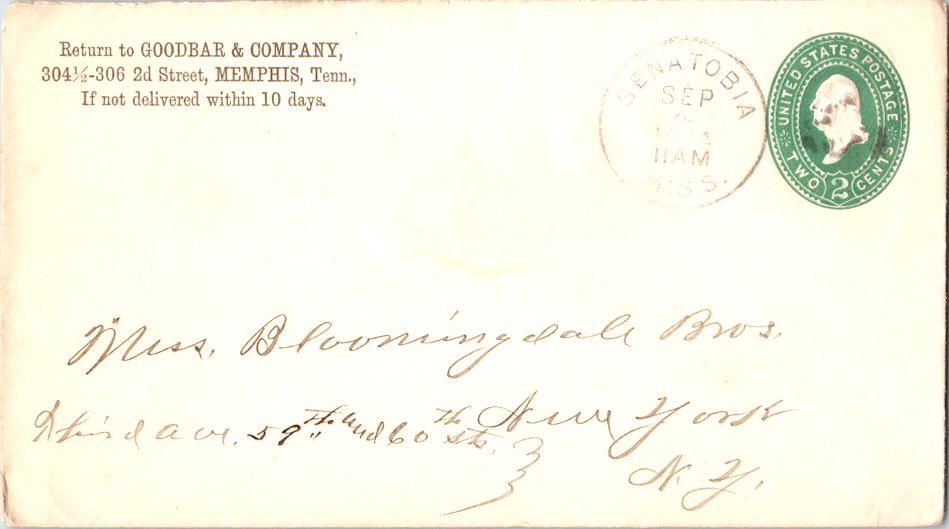 Return to GOODBAR & COMPANY,
304½-306 2d Street, MEMPHIS, Tenn.,
If not delivered within 10 days.
SENATOBIA
SEP
11AM
MISS.
UNITED STATES POSTAGE
TWO 2 CENTS
Mess. Bloomingdale Bros.
Third Ave. 59th and 60th Sts. New York
N. Y.